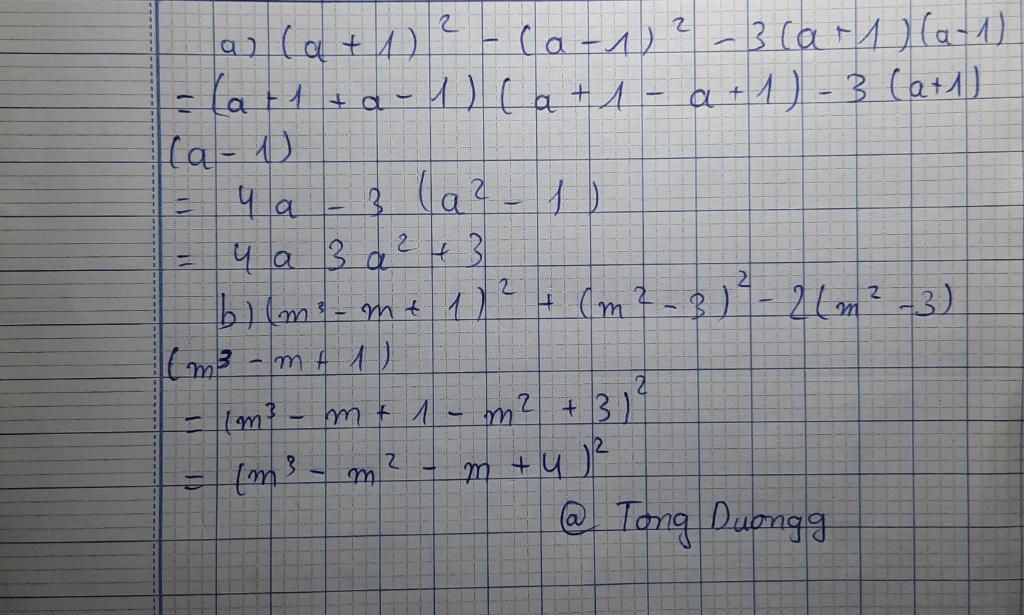 a) (a + 1)² - (a - 1)² - 3(a + 1)(a - 1)
= (a + 1 + a - 1)(a + 1 - a + 1) - 3(a+1)
(a - 1)
= 4a - 3(a² - 1)
= 4a 3a² + 3
b) (m³ - m + 1)² + (m² - 3)² - 2(m² - 3)
(m³ - m + 1)
= (m³ - m + 1 - m² + 3)²
= (m³ - m² - m + 4)²
@ Tong Duongg